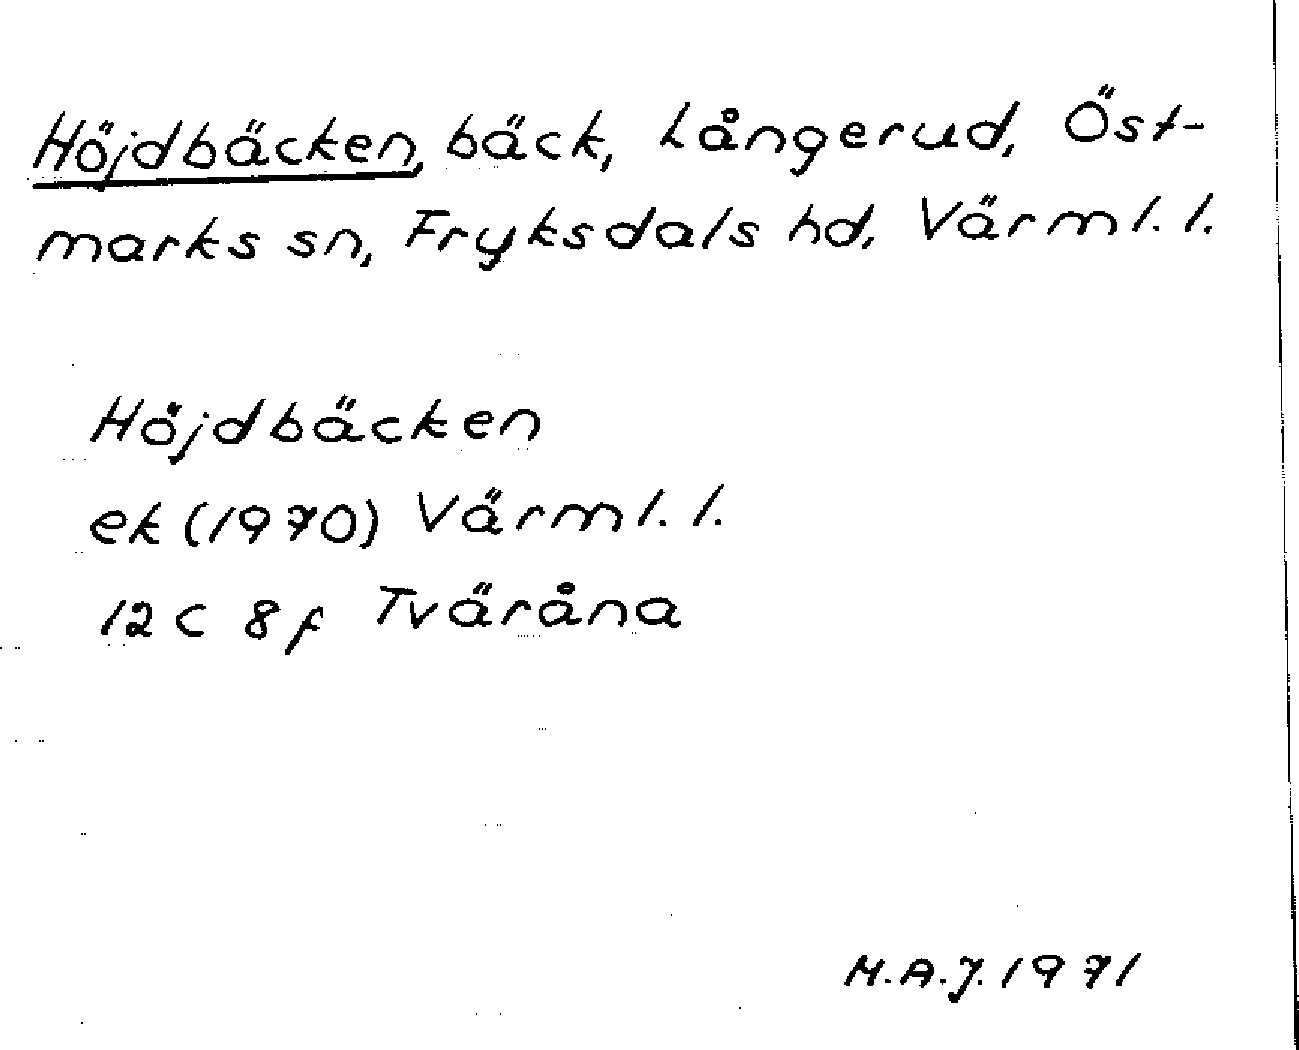 Höjdbäcken, bäck, Långerud, Öst-
marks sn, Fryksdals hd, Värml. l.
Höjdbäcken
ek (1970) Värml. l.
12 C 8 f Tväråna
M.A.J. 1971